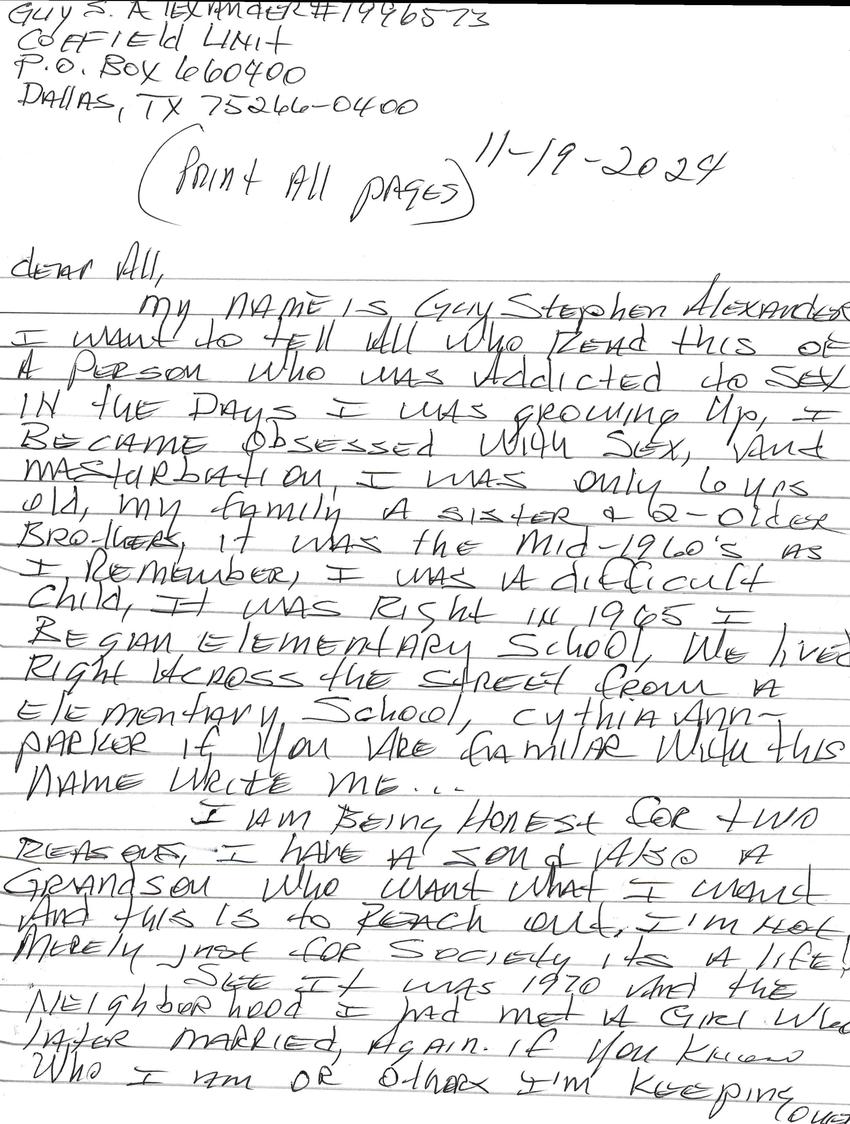 Guy S. Alexander #1996573
Coffield Unit
P.O. Box 660400
Dallas, TX 75266-0400
(Print All pages) 11-19-2024
dear All,
My name is Guy Stephen Alexander
I want to tell All who Read this of
A Person who was Addicted to Sex
in the Days I was growing up, I
Became Obsessed with Sex, And
masturbation, I was only 6 yrs
old, my family A sister & 2-older
Brothers, it was the mid-1960's as
I Remember, I was A difficult
child, It was Right in 1965 I
Began Elementary School, We lived
Right Across the street from A
Elementary School, Cythia Ann-
Parker if you are familar with this
name write me...
I am Being Honest for two
Reasons, I have A son & Also A
Grandson who want what I want
And this is to Reach out, I'm not
merely just for Society its A life!
See It was 1970 and the
Neighborhood I had met A Girl who
later married, Again. if you know
who I am or others I'm keeping
(over